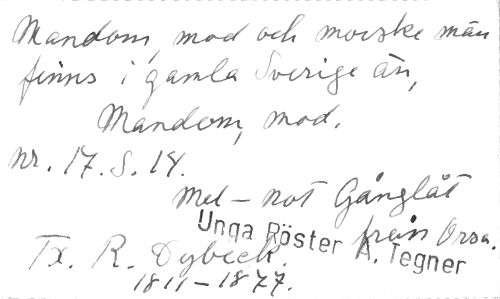 Mandom, mod och morske män
finns i gamla Sverige än,
Mandom, mod.
Nr. 17. S. 14.
Mel - not Gånglåt
från Orsa.
Unga Röster A. Tegner
Tx. R. Dybeck.
1811-1877.